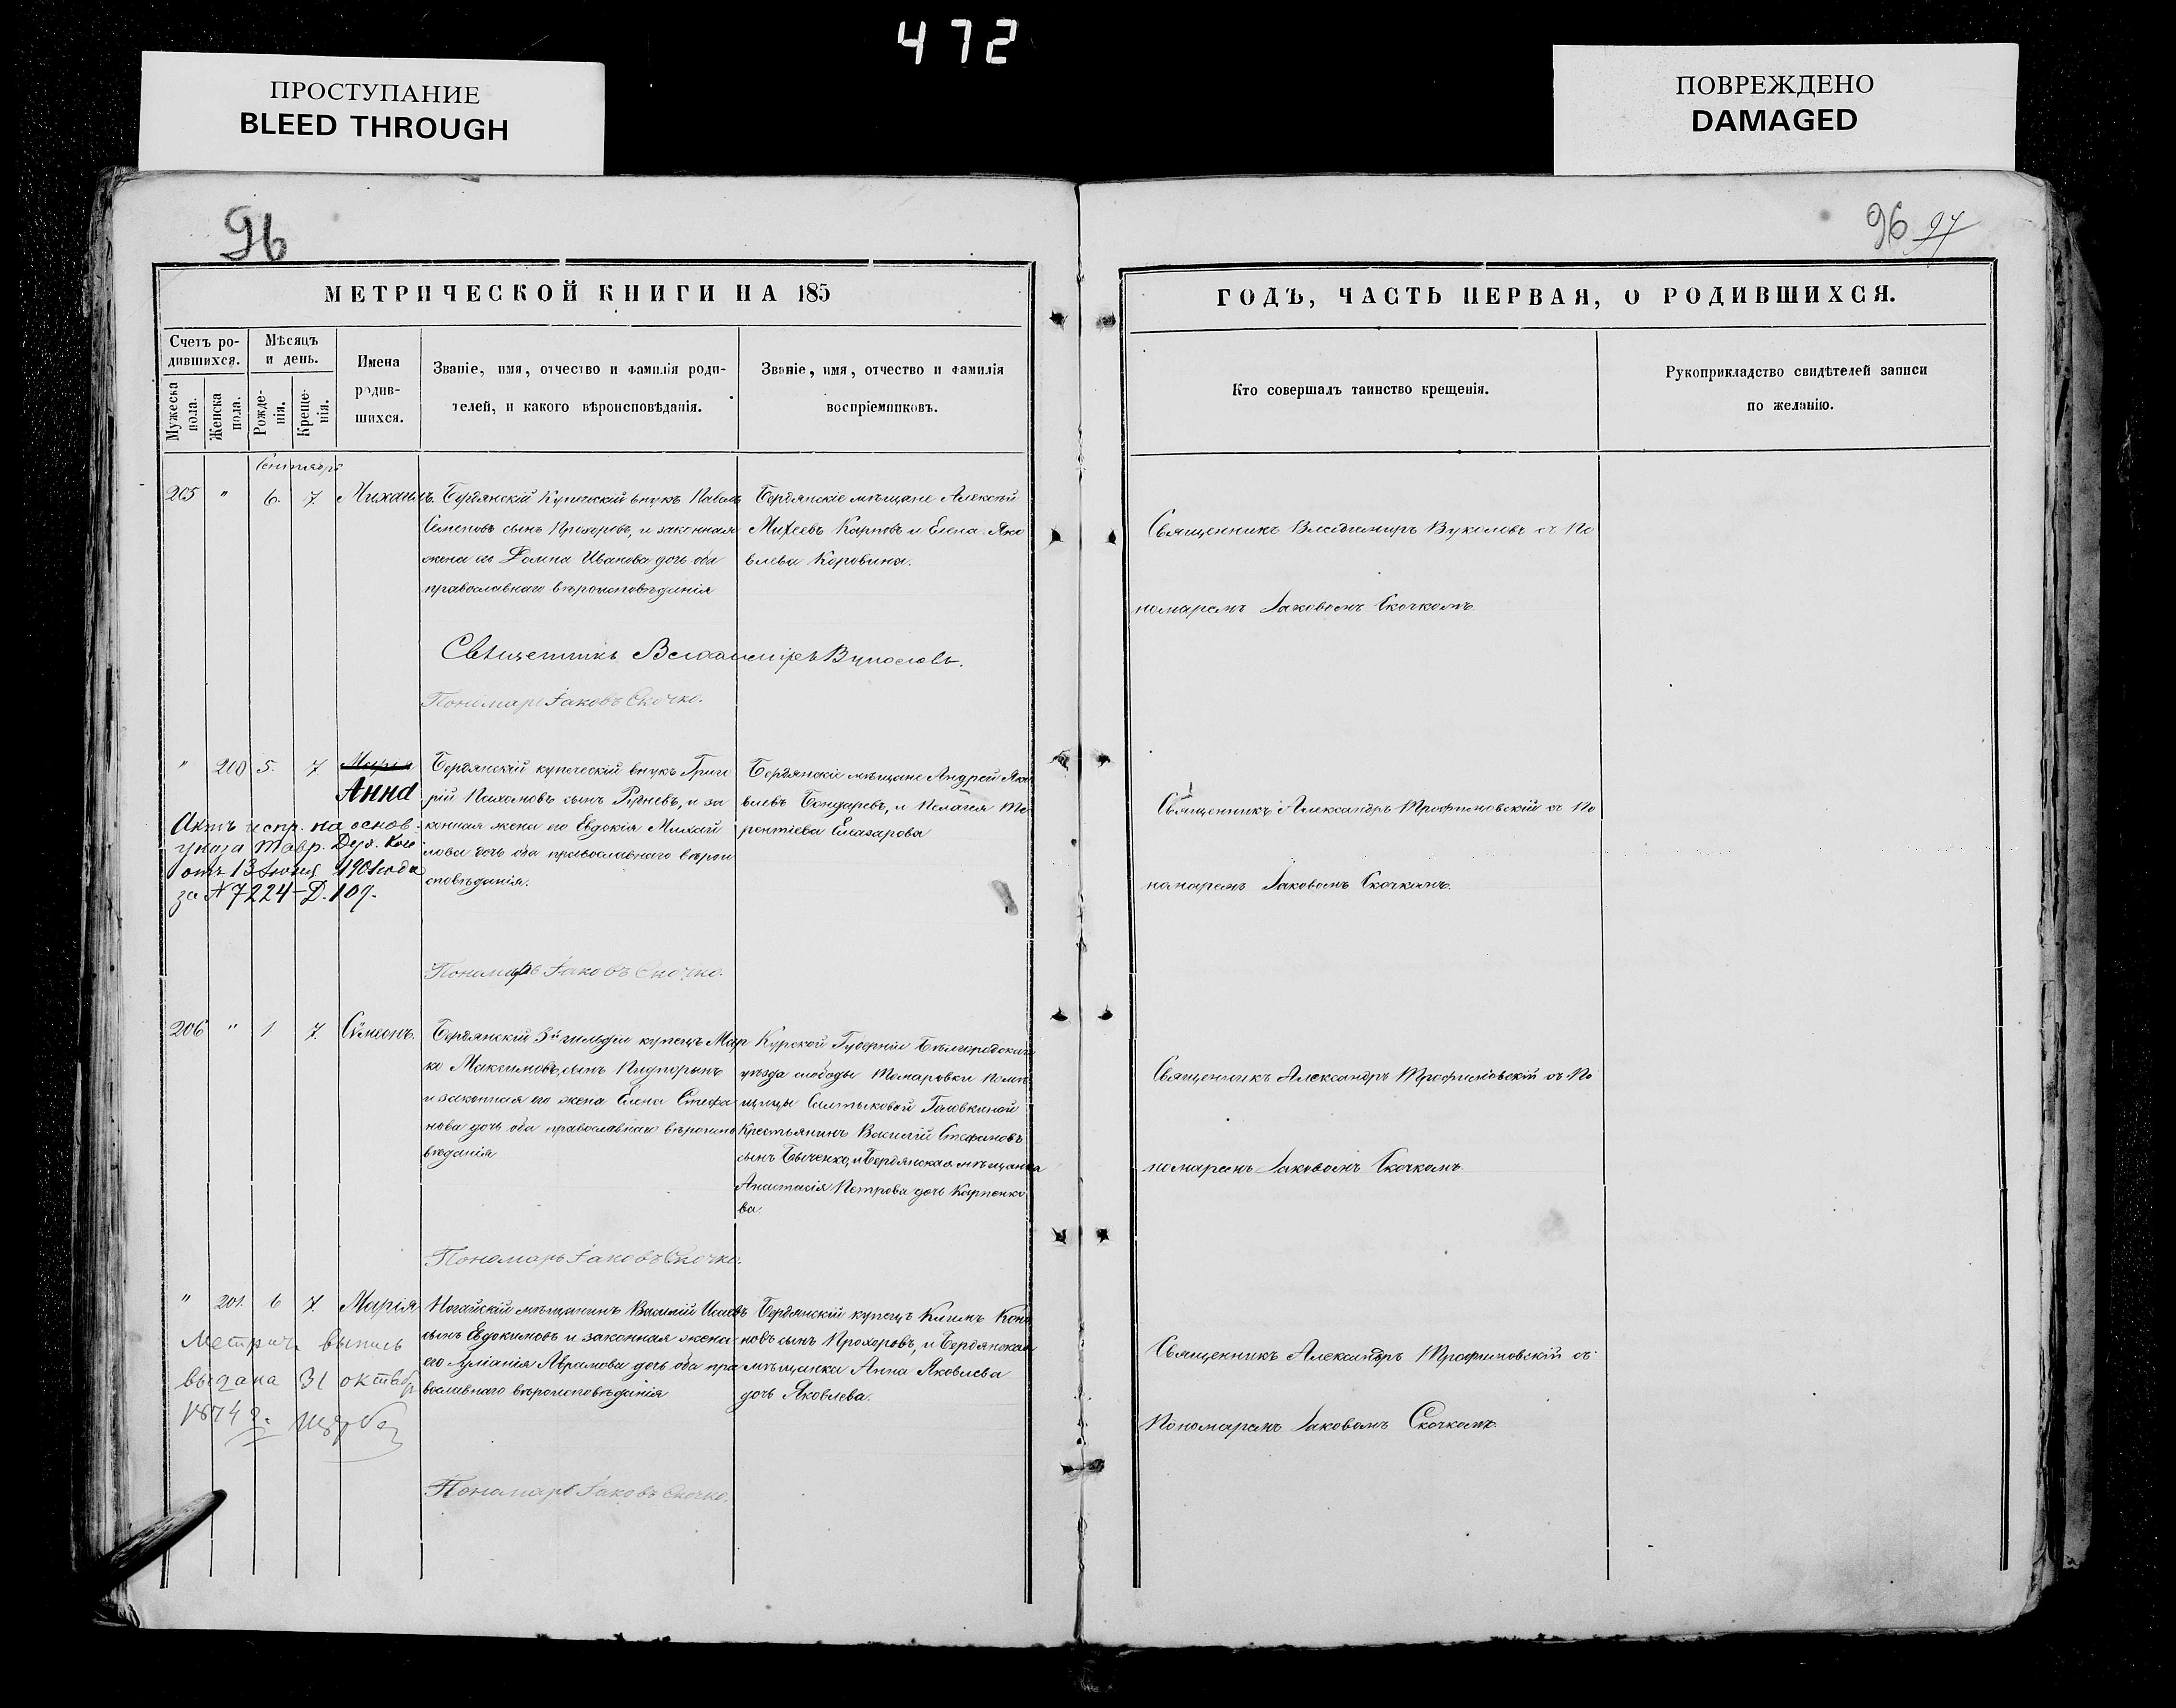 472
ПРОСТУПАНИЕ
BLEED THROUGH
ПОВРЕЖДЕНО
DAMAGED
96
96 97
МЕТРИЧЕСКОЙ КНИГИ НА 185
ГОДЪ, ЧАСТЬ ПЕРВАЯ, О РОДИВШИХСЯ.
Счетъ ро-
дившихся.
Мужеска пола.
Женска пола.
Мѣсяцъ
и день.
Рожде-
нія.
Креще-
нія.
Имена
родив-
шихся.
Званіе, имя, отчество и фамилія роди-
телей, и какого вѣроисповѣданія.
Званіе, имя, отчество и фамилія
воспріемниковъ.
Кто совершалъ таинство крещенія.
Рукоприкладство свидѣтелей записи
по желанію.
Сентября
205 " 6. 7 Михаилъ.
Бердянскій Купеческій внукъ Павелъ
Семеновъ сынъ Прохоровъ, и законная
жена его Домна Иванова дочь оба
православнаго вѣроисповѣданія
Бердянскіе мѣщане Алексѣй
Михеевъ Карповъ и Елена Яко
влева Коровина.
Священникъ Владимиръ Вуколовъ съ По
номаремъ Іаковомъ Скочкомъ.
Священникъ Владимiръ Вуколовъ.
Пономарь Іаковъ Скочко.
" 200 5. 7 Марія
Анна
Бердянскій купеческій внукъ Григо
рій Пахомовъ сынъ, и за
конная жена его Евдокія Михай
лова дочь оба православнаго вѣрои
сповѣданія.
Бердянскіе мѣщане Андрей Яко
влевъ Бондаревъ, и Пелагея Те
рентіева Елазарова
Священникъ Александръ Трофимовскій съ По
намаремъ Іаковомъ Скочкомъ.
Актъ испр. на основ.
указа Тавр. Дух. Кон
отъ 13 Іюня 1901 года
за № 7224-Д. 109.
Пономарь Іаковъ Скочко.
206 " 1 7. Сѵмеонъ.
Бердянскій 3й гильдіи купецъ Мар
ко Максимовъ сынъ
и законная его жена Елена Стефа
нова дочь оба православнаго вѣроиспо
вѣданія
Курской Губерніи Бѣлгородскаго
уѣзда слободы Томаровки помѣ
щицы Салтыковой Головкиной
Крестьянинъ Василій Стефановъ
сынъ Быченко, и Бердянская мѣщанка
Анастасія Петрова дочь Карпенко
ва.
Священникъ Александръ Трофимовскій съ По
номаремъ Іаковомъ Скочкомъ.
Пономарь Іаковъ Скочко.
" 201. 6 7. Марія
Ногайскій мѣщанинъ Василій Исаевъ
сынъ Евдокимовъ и законная жена
его Іуліанія Аврамова дочь оба пра
вославнаго вѣроисповѣданія
Бердянскій купецъ Климъ Коно
новъ сынъ Прохоровъ, и Бердянская
мѣщанка Анна Яковлева
дочь Яковлева.
Священникъ Александръ Трофимовскій съ
Пономаремъ Іаковомъ Скочкомъ.
Метрич. выпись
выдана 31 октябр
1874 г.
Пономарь Іаковъ Скочко.